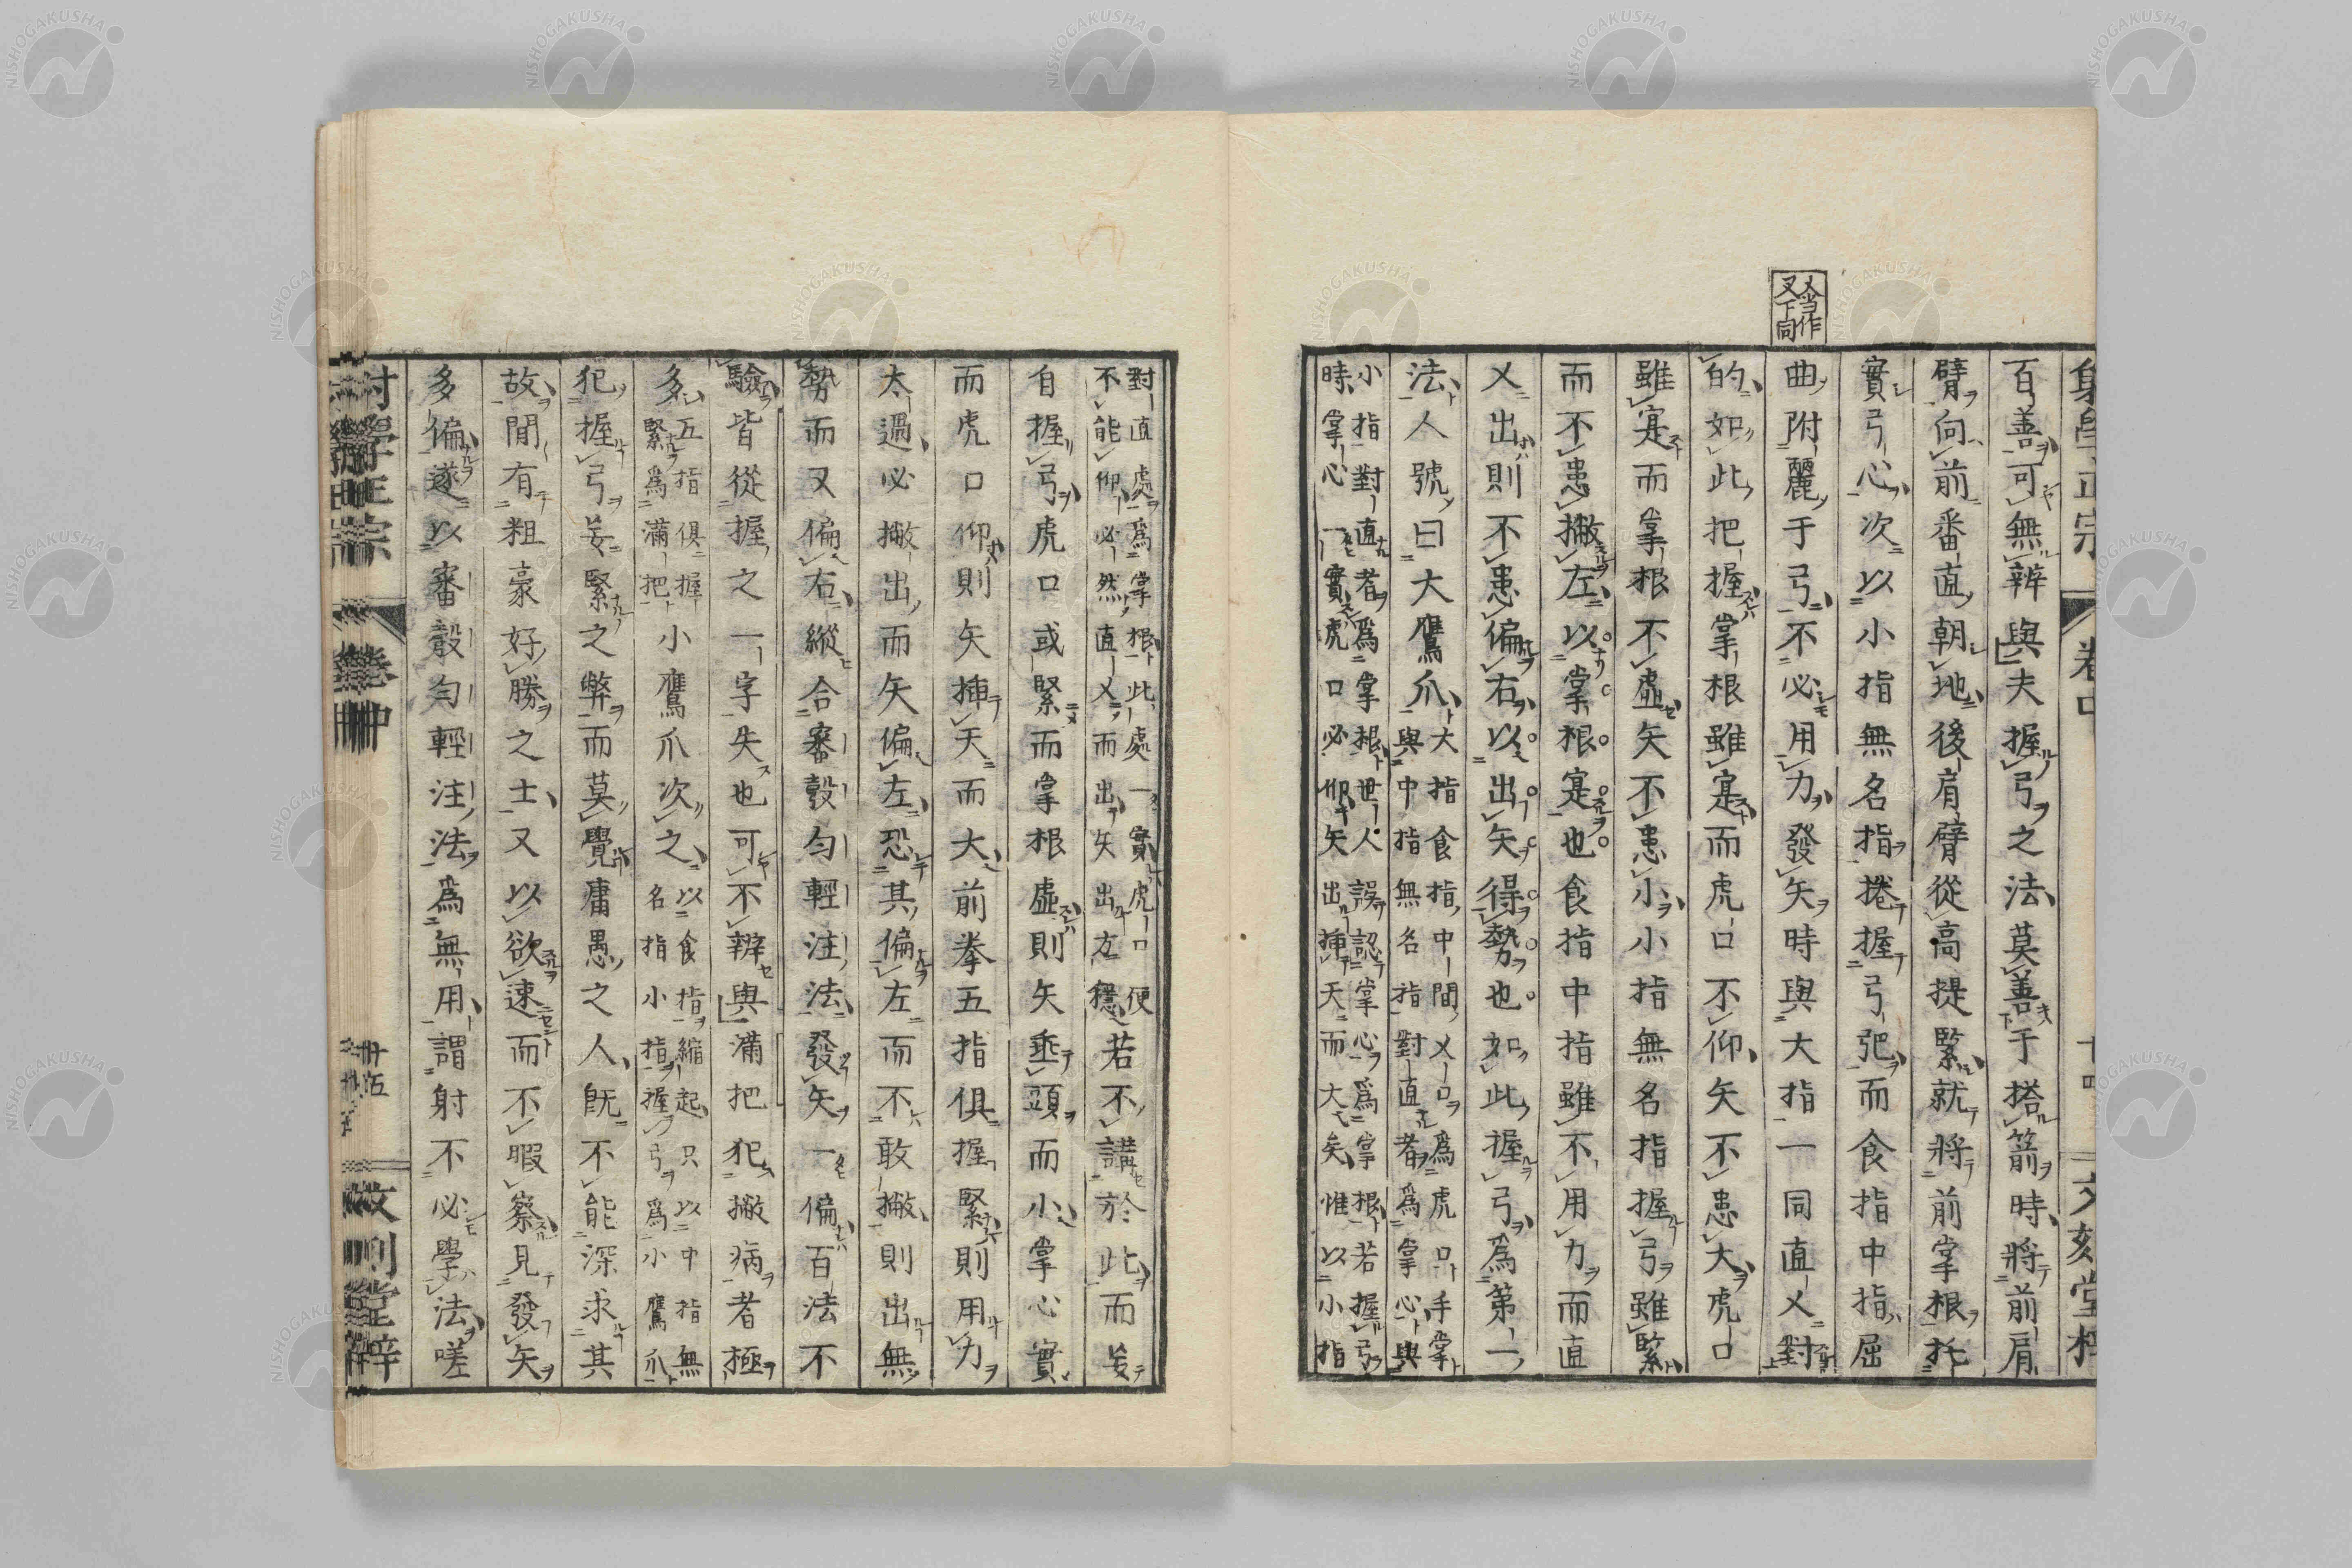 射學正宗 卷中 十四 文刻堂梓
乂当作
叉下同
百善可無辨與夫握弓之法莫善于搭箭時將前肩
臂向前番直朝地後肩臂從高提緊就將前掌根托
實弓心次以小指無名指捲握弓弝而食指中指屈
曲附麗于弓不必用力發矢時與大指一同直乂對
的如此把握掌根雖寔而虎口不仰矢不患大虎口
雖寔而掌根不虛矢不患小小指無名指握弓雖緊
而不患撇左以掌根寔也食指中指雖不用力而直
乂出則不患偏右以出矢得勢也如此握弓為第一
法人號曰大鷹爪
大指食指中間乂口為虎口手掌
與中指無名指對直者為掌心與
小指對直者為掌根世人誤認掌心為掌根若握弓
時掌心一實虎口必仰矢出揷天而大矣惟以小指
對直處為掌根此處一實虎口便
不能仰必然直乂而出矢出方穩
若不講於此而妄
自握弓虎口或緊而掌根虛則矢垂頭而小掌心實
而虎口仰則矢揷天而大前拳五指俱握緊則用力
太過必撇出而矢偏左恐其偏左而不敢撇則出無
勢而又偏右縱合審彀勻輕注法發矢一偏百法不
驗皆從握之一字失也可不辨與滿把犯撇病者極
多
五指俱握
緊為滿把
小鷹爪次之
以食指縮起只以中指無
名指小指握弓為小鷹爪
犯握弓妄緊之弊而莫覺庸愚之人旣不能深求其
故間有粗豪好勝之士又以欲速而不暇察見發矢
多偏遂以審彀勻輕注法為無用謂射不必學法嗟
射學正宗 卷中